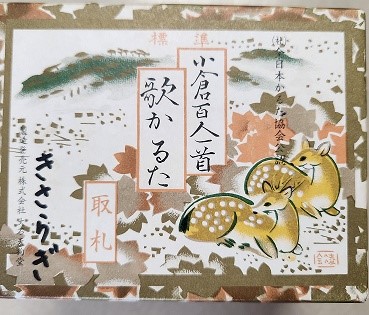 標準
小倉百人一首
歌かるた
取札
(社)全日本かるた協会
きさらぎ
製造発売元 株式会社